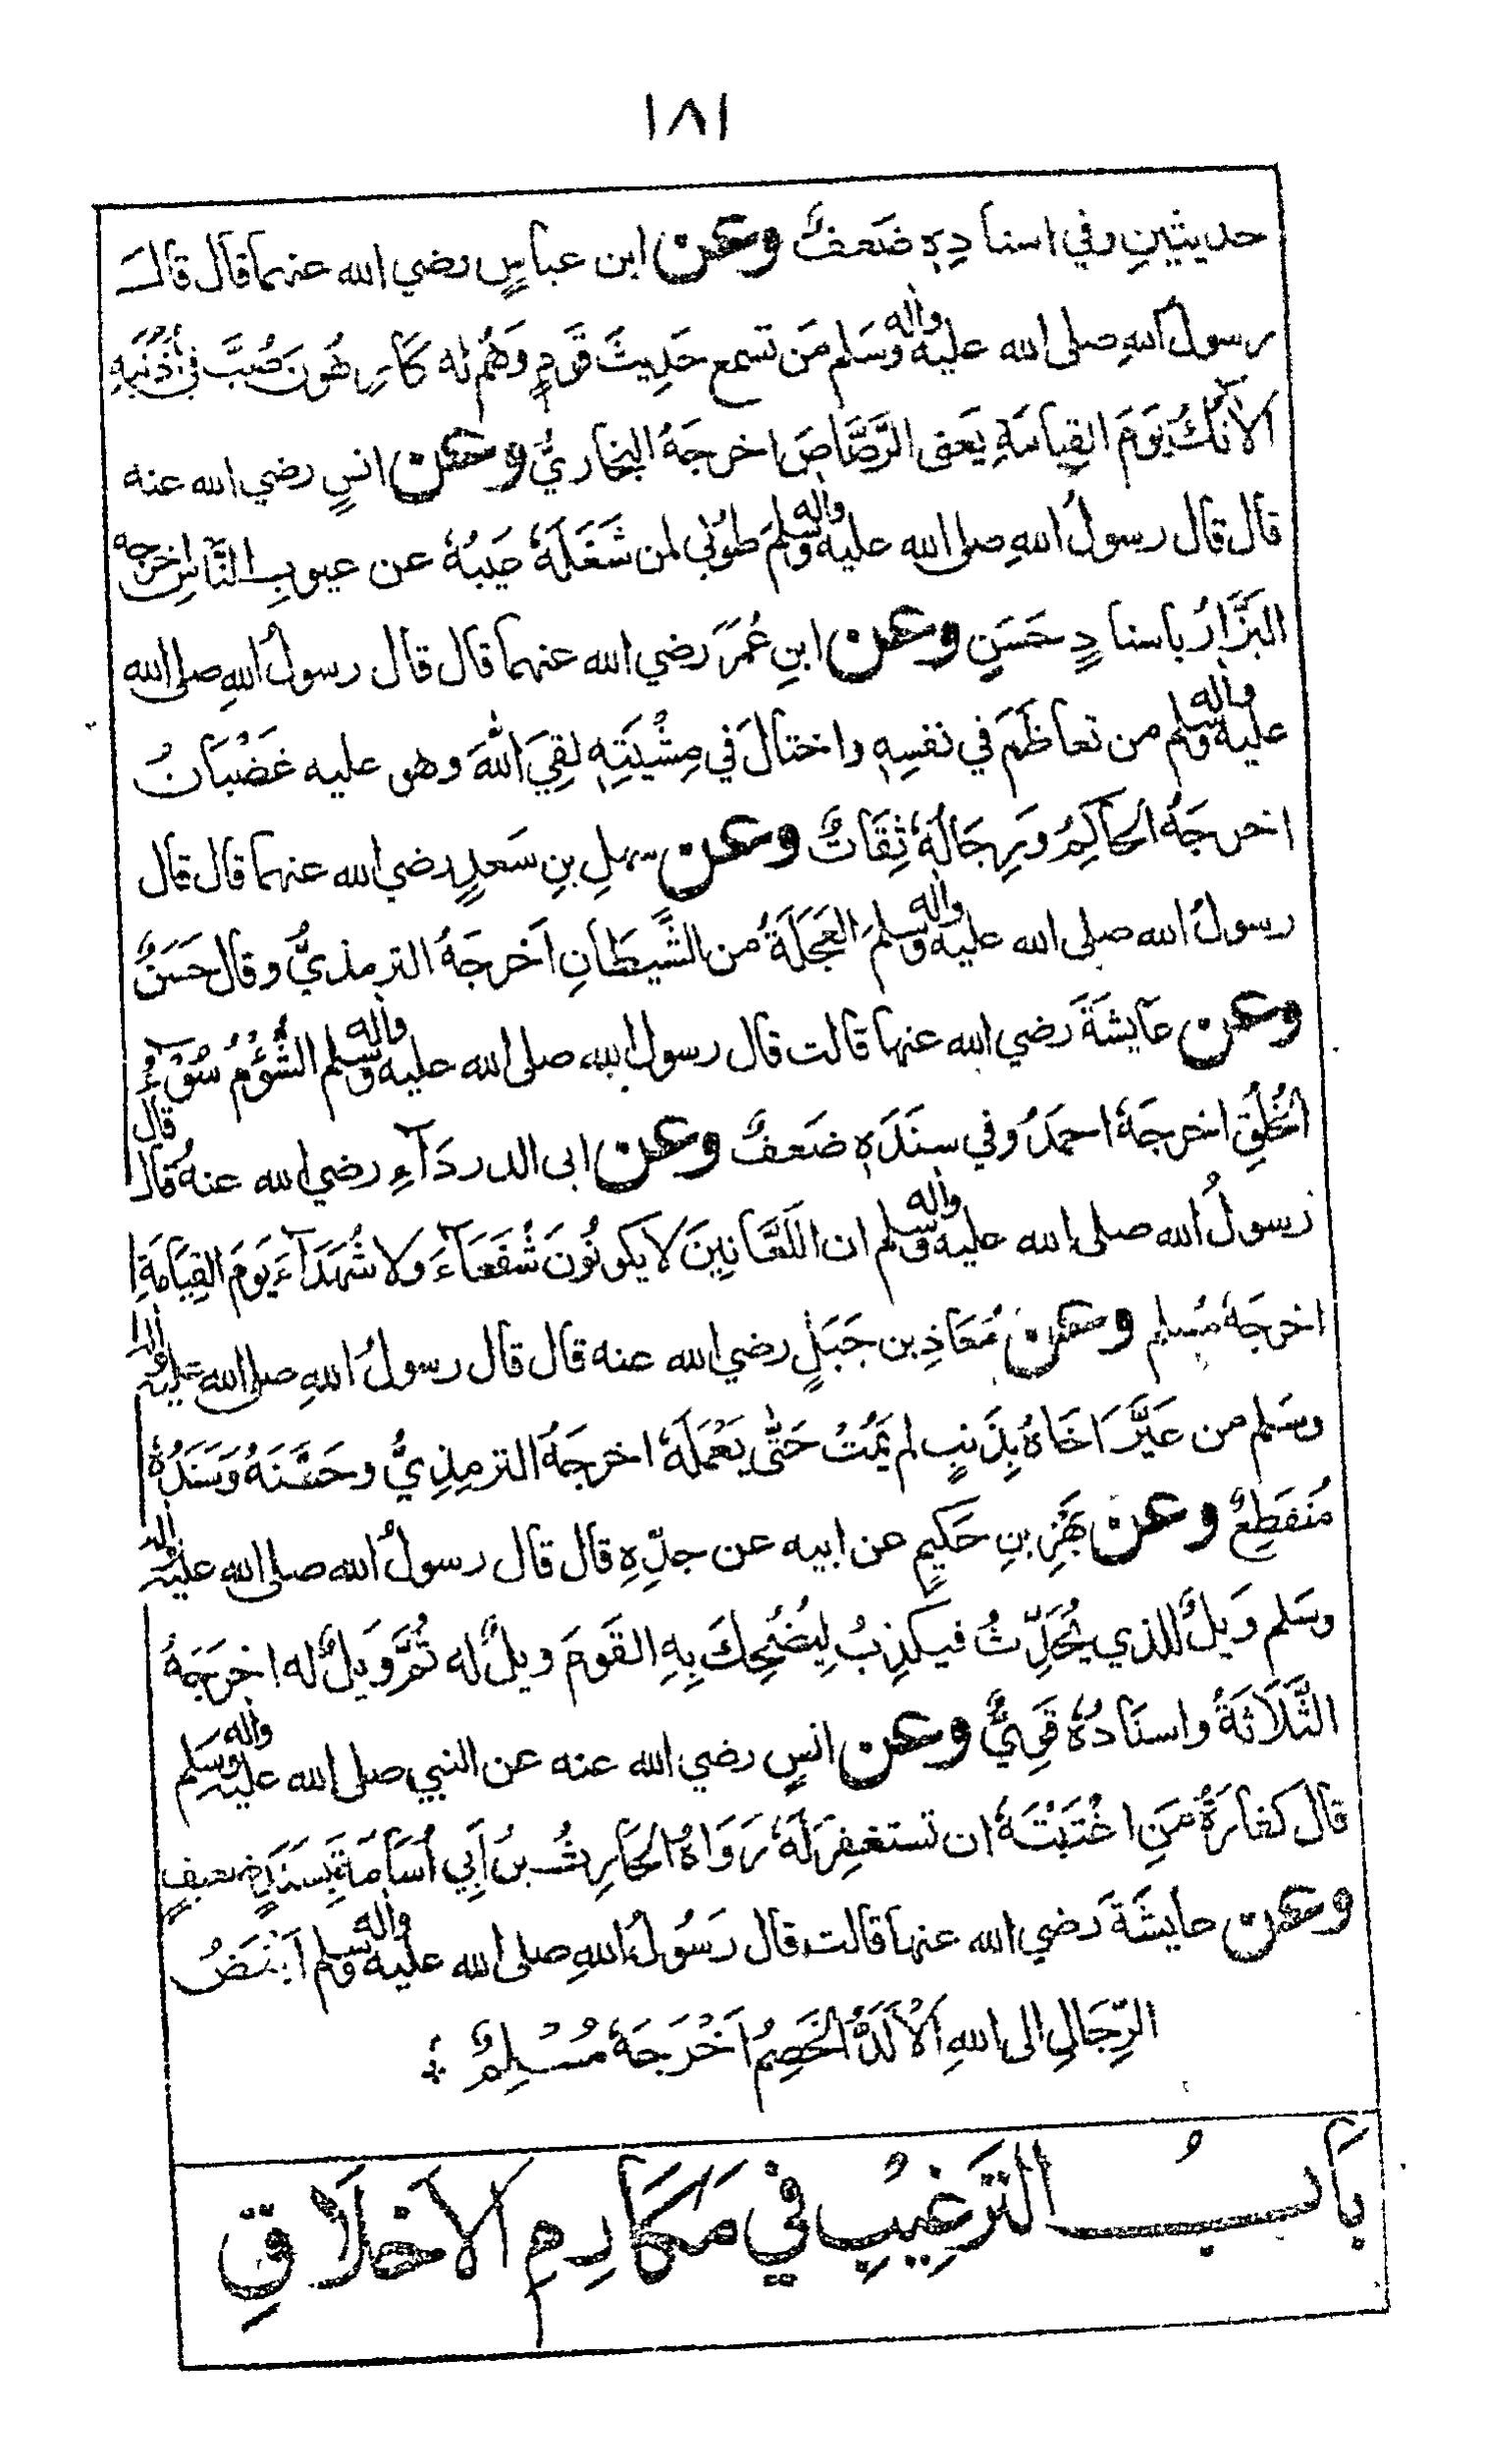 ١٨١
حديثينِ وفي اسنادِهٖ ضَعفٌ وعن ابن عباسٍ رضي الله عنهما قال قال
رسولُ اللهِ صلى الله عليه واٰله وسَلم مَن تسمع حَدِيثَ قَومٍ وَهُم له كَارِهُونَ صُبَّ في أُذُنَيهِ
الآنُكُ يَومَ القِيامَةِ يَعنى الرَّصَّاصَ اخرجَهُ البخاريُّ وعن انسٍ رضي الله عنه
قال قال رسولُ اللهِ صلى الله عليه واٰله وسلمَ طُوبٰى لمن شَغَلَهٗ عَيبُهٗ عن عيوبِ النَّاسِ اخرجه
البَزَّارُ باسنادٍ حَسَنٍ وعن ابنِ عُمَرَ رضي الله عنهما قال قال رسولُ اللهِ صلى الله
عليه واٰله وسلم من تعاظَمَ في نفسِهٖ واختالَ في مِشْيَتِهٖ لَقِيَ اللّٰهَ وهو عليه غَضْبَانُ
اخرجَهُ الحاكِمُ ورِجَالُهٗ ثِقَاتٌ وعن سهلِ بنِ سَعدٍ رضي الله عنهما قال قال
رسولُ الله صلى الله عليه واٰله وسلمَ العَجَلَةُ من الشَّيطَانِ اَخرجَهُ الترمذيُّ وقال حَسَنٌ
وعن عَايشَةَ رضي الله عنها قالت قال رسول الله صلى الله عليه واٰله وسلم الشُّؤْمُ سُوْءُ
الخُلُقِ اخرجَهٗ احمَدُ وفي سنَدَهٖ ضَعفٌ وعن ابى الدردَآءِ رضي الله عنهُ قال قال
رسولُ الله صلى الله عليه واٰله وسلم ان اللَّعَّانِينَ لا يكونُونَ شُفَعَآءَ ولا شُهَدَآءَ يَومَ القِيَامَةِ
اخرجَهٗ مُسلم وعن مُعَاذِ بن جَبَلٍ رضي الله عنه قال قال رسولُ اللهِ صلى الله عليه واٰله
وسَلم من عَيَّرَ اَخَاهُ بِذَنبٍ لم يَمُتْ حَتّٰى يَعْمَلَهٗ اخرجَهُ الترمِذِيُّ وحَسَّنَهُ وَسَنَدُهٗ
مُنقَطِعٌ وعن بَهْزِ بنِ حَكِيمٍ عن ابيه عن جدِّهِ قال قال رسولُ الله صلى الله عليه واٰله
وسَلم وَيلٌ للذي يُحَدِّثُ فيكذِبُ لِيُضحِكَ بِهِ القَومَ ويلٌ له ثُمَّ وَيلٌ له اخرَجَهُ
الثَّلَاثَةُ واسنَادُهٗ قَوِيٌّ وعن انسٍ رضي الله عنه عن النبي صلى الله عليه واٰله وسَلم
قال كفارَةُ مَنِ اغْتَبْتَهٗ ان تستغفِرَ لَهٗ رَوَاهُ الحَارِثُ بنُ اَبِي اُسَامَةَ بِسَنَدٍ ضعيفٍ
وعن عايشَةَ رضي الله عنها قالت قال رَسُولُ اللهِ صلى الله عليه واٰله وسلم اَبْغَضُ
الرِّجَالِ الى اللهِ اَلْاَلَدُّ الخَصِمُ اَخْرَجَهٗ مُسْلِمٌ
بَابُ التَرغِيبِ في مَكَارِمِ الاَخلَاقِ